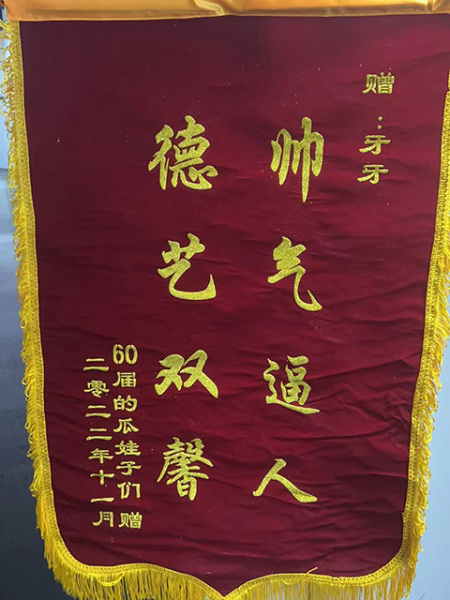 赠：牙牙
帅气逼人
德艺双馨
60届的瓜娃子们赠
二零二二年十一月